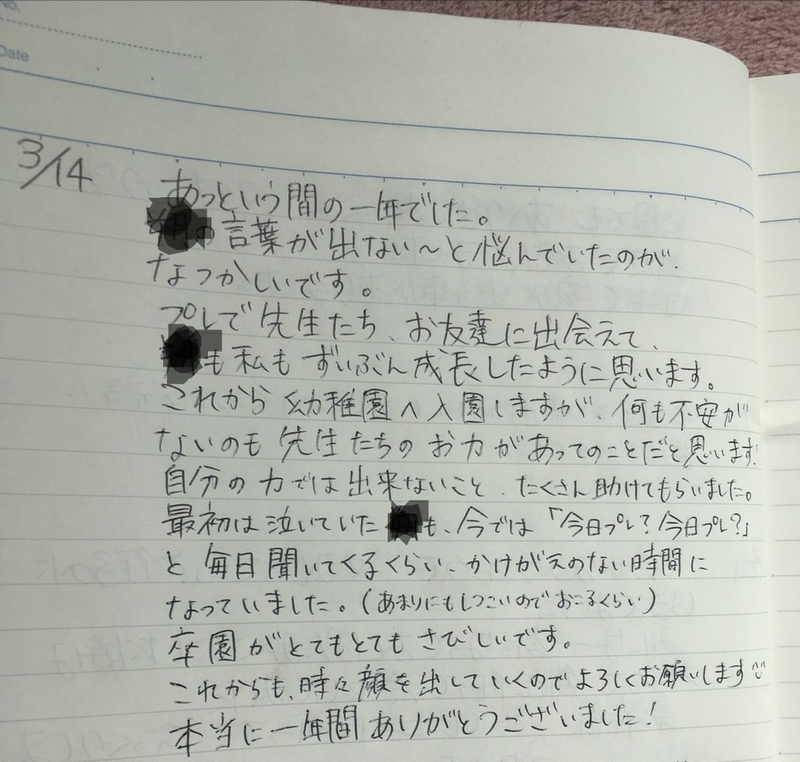 No.
Date
3/14
あっという間の一年でした。
の言葉が出ない〜と悩んでいたのが、
なつかしいです。
プレで先生たち、お友達に出会えて、
も私もずいぶん成長したように思います。
これから幼稚園へ入園しますが、何も不安が
ないのも先生たちのお力があってのことだと思います。
自分の力では出来ないこと、たくさん助けてもらいました。
最初は泣いていたも、今では「今日プレ?今日プレ?」
と毎日聞いてくるくらい、かけがえのない時間に
なっていました。(あまりにもしつこいのでおこるくらい)
卒園がとてもとてもさびしいです。
これからも、時々顔を出していくのでよろしくお願いします
本当に一年間ありがとうございました!